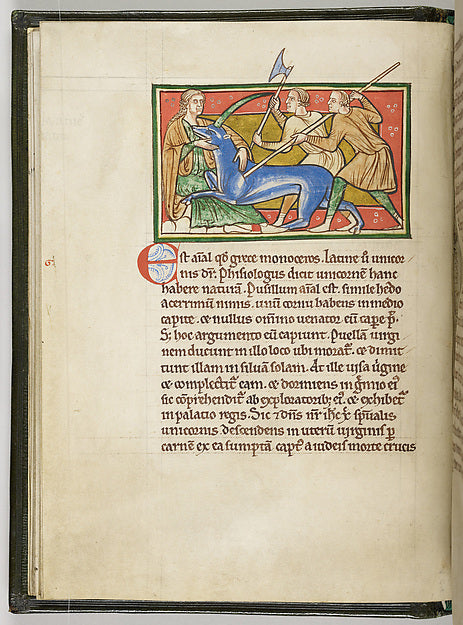 Est aīal qd̄ grece monoceros. Latine ū unicor
nis dr̄. Phisiologus dicit unicornē hanc
habere naturā. Pusillum aīal est. simile hedo
acerrimū nimis. unū cornu habens in medio
capite. et nullus omnino venator eū cape p̄.
S; hoc argumento eū capiunt. Puellā virgi
nem ducunt in illo loco ubi morat̄. et dimit
tunt illam in siluā solam. At ille visa v̄gine
et complectit̄ eam. et dormiens in gremio ei᾽
sic cōprehendit̄ ab exploratorib; ei᾽. et exhibet̄
in palatio regis. Sic et dn̄s nr̄ ih̄c xp̄c spūalis
unicornis. descendens in uterū virginis p̄
carnē ex ea sumptā. capt᾽ a iudeis morte crucis